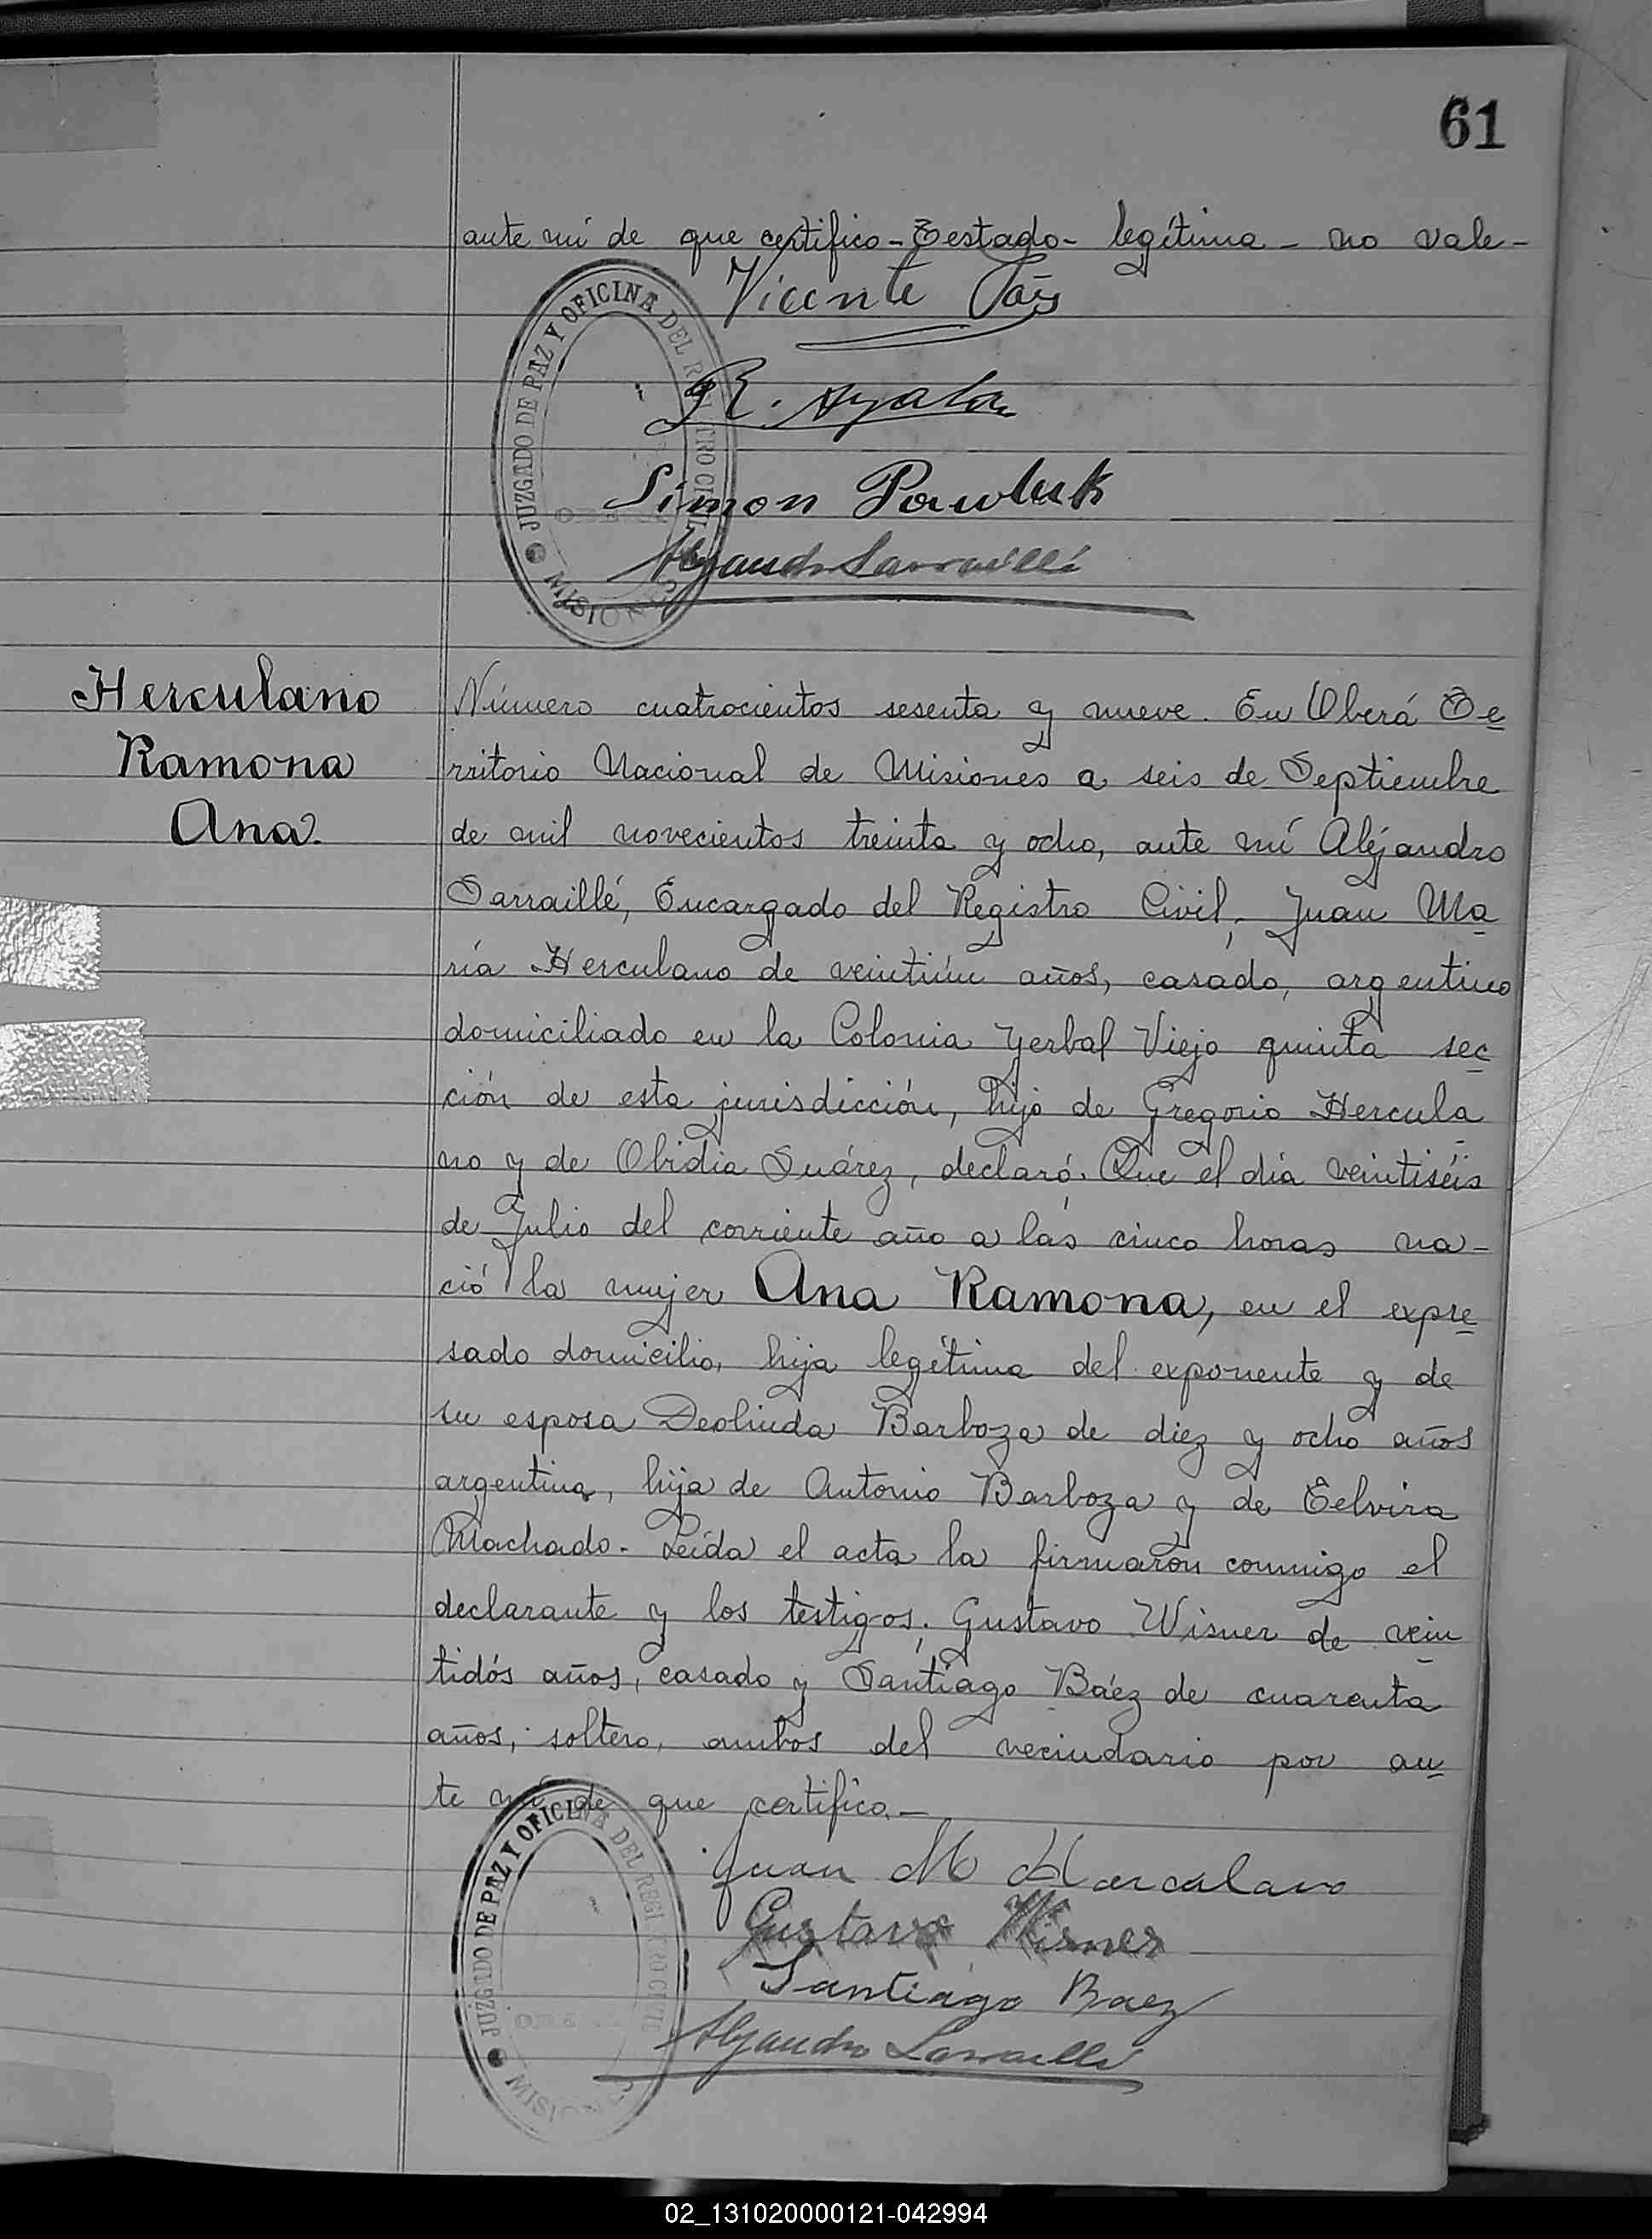 61
ante mí de que certifico - Testado - legítima - no vale -
Vicente
R. Ayala
Simon Pawluk
Alejandro Sarraillé
JUZGADO DE PAZ Y OFICINA DEL REGISTRO CIVIL
MISIONES
Herculano
Ramona
Ana.
Número cuatrocientos sesenta y nueve. En Oberá Te
rritorio Nacional de Misiones a seis de Septiembre
de mil novecientos treinta y ocho, ante mí Alejandro
Sarraillé, Encargado del Registro Civil, Juan Ma
ría Herculano de veintiún años, casado, argentino
domiciliado en la Colonia Yerbal Viejo quinta sec
ción de esta jurisdicción, hijo de Gregorio Hercula
no y de Obidia Suárez, declaró: Que el día veintiséis
de Julio del corriente año a las cinco horas na-
ció la mujer Ana Ramona, en el expre
sado domicilio, hija legítima del exponente y de
su esposa Deolinda Barboza de diez y ocho años
argentina, hija de Antonio Barboza y de Eelvira
Machado - Leída el acta la firmaron conmigo el
declarante y los testigos: Gustavo Wisner de vein
tidós años, casado y Santiago Báez de cuarenta
años, soltero, ambos del vecindario por an
te mí de que certifico. -
Juan M Hercalano
Gustavo Wisner
Santiago Baez
Alejandro Sarraillé
JUZGADO DE PAZ Y OFICINA DEL REGISTRO CIVIL
MISIONES
02_131020000121-042994